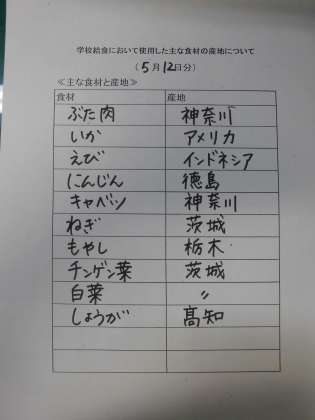 学校給食において使用した主な食材の産地について
（5月12日分）
≪主な食材と産地≫
食材 産地
ぶた肉 神奈川
いか アメリカ
えび インドネシア
にんじん 徳島
キャベツ 神奈川
ねぎ 茨城
もやし 栃木
チンゲン菜 茨城
白菜 〃
しょうが 高知